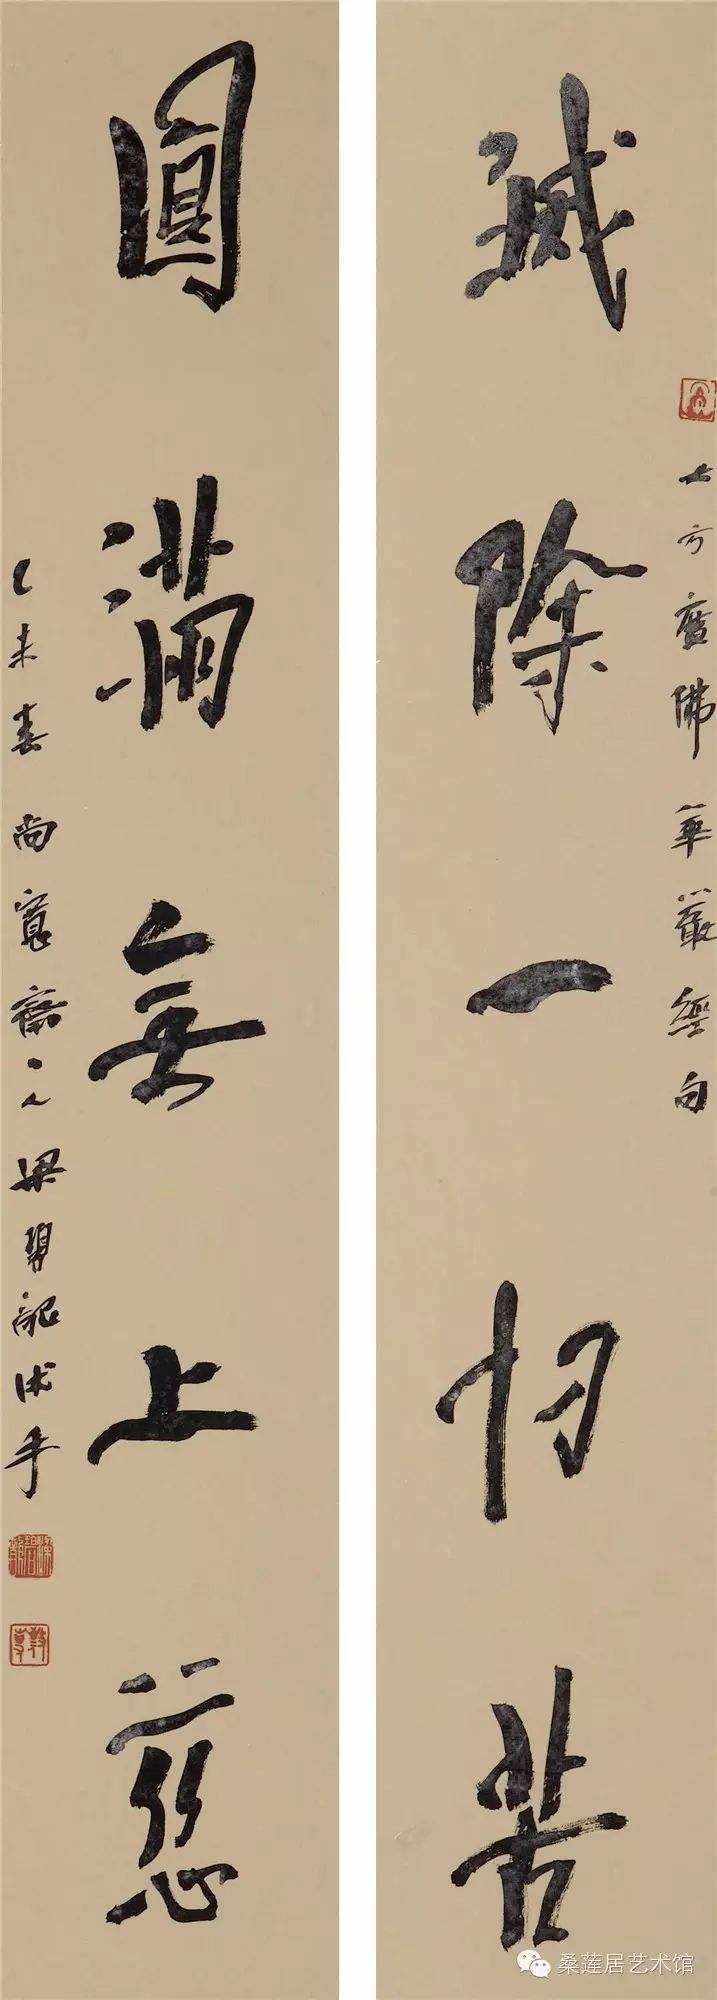 滅除一切苦
大方廣佛華嚴經句
圓滿無上慈
乙未春 尚寬齋主人 梁 沐手
桑莲居艺术馆